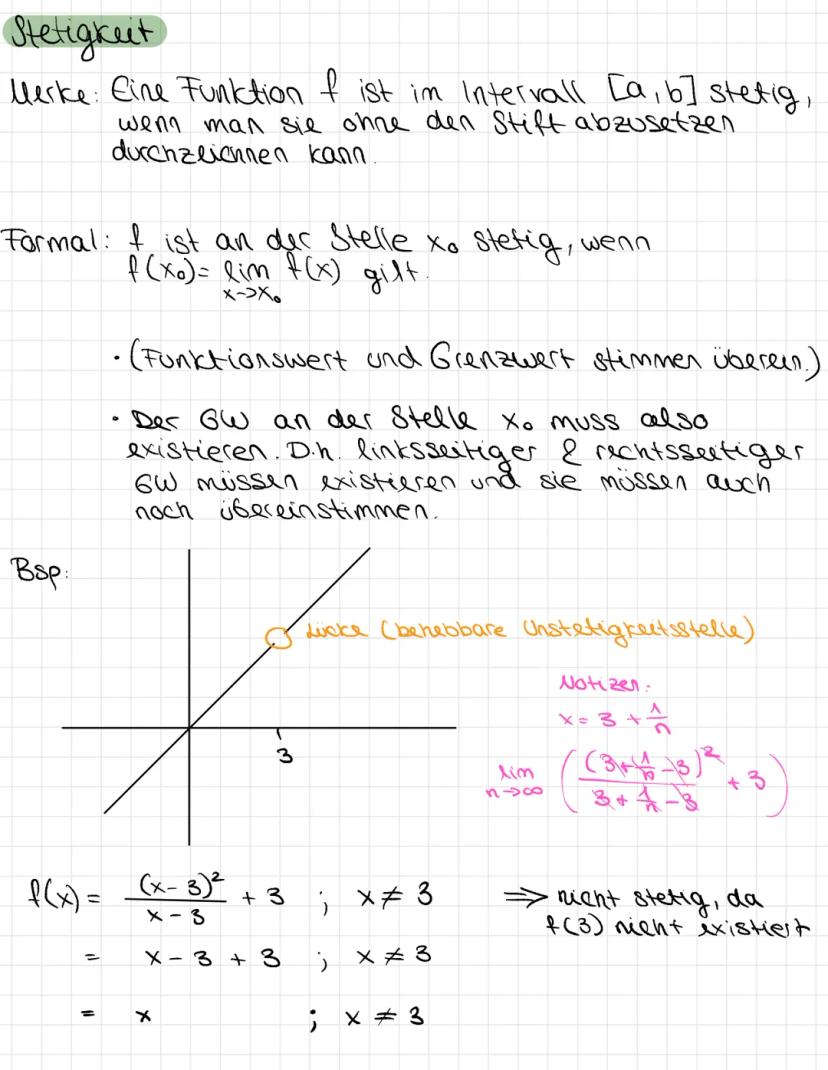 Stetigkeit
Merke: Eine Funktion f ist im Intervall [a,b] stetig,
wenn man sie ohne den Stift abzusetzen
durchzeichnen kann.
Formal: f ist an der Stelle x₀ stetig, wenn
f(x₀) = lim f(x) gilt.
x->x₀
• (Funktionswert und Grenzwert stimmen überein.)
• Der GW an der Stelle x₀ muss also
existieren. D.h. linksseitiger & rechtsseitiger
GW müssen existieren und sie müssen auch
noch übereinstimmen.
Bsp:
Lücke (behebbare Unstetigkeitsstelle)
3
Notizen:
x = 3 + 1/n
lim n->∞ ( (3 + 1/n - 3)² / (3 + 1/n - 3) + 3 )
f(x) = (x-3)² / (x-3) + 3 ; x ≠ 3
= x - 3 + 3 ; x ≠ 3
= x ; x ≠ 3
=> nicht stetig, da
f(3) nicht existiert